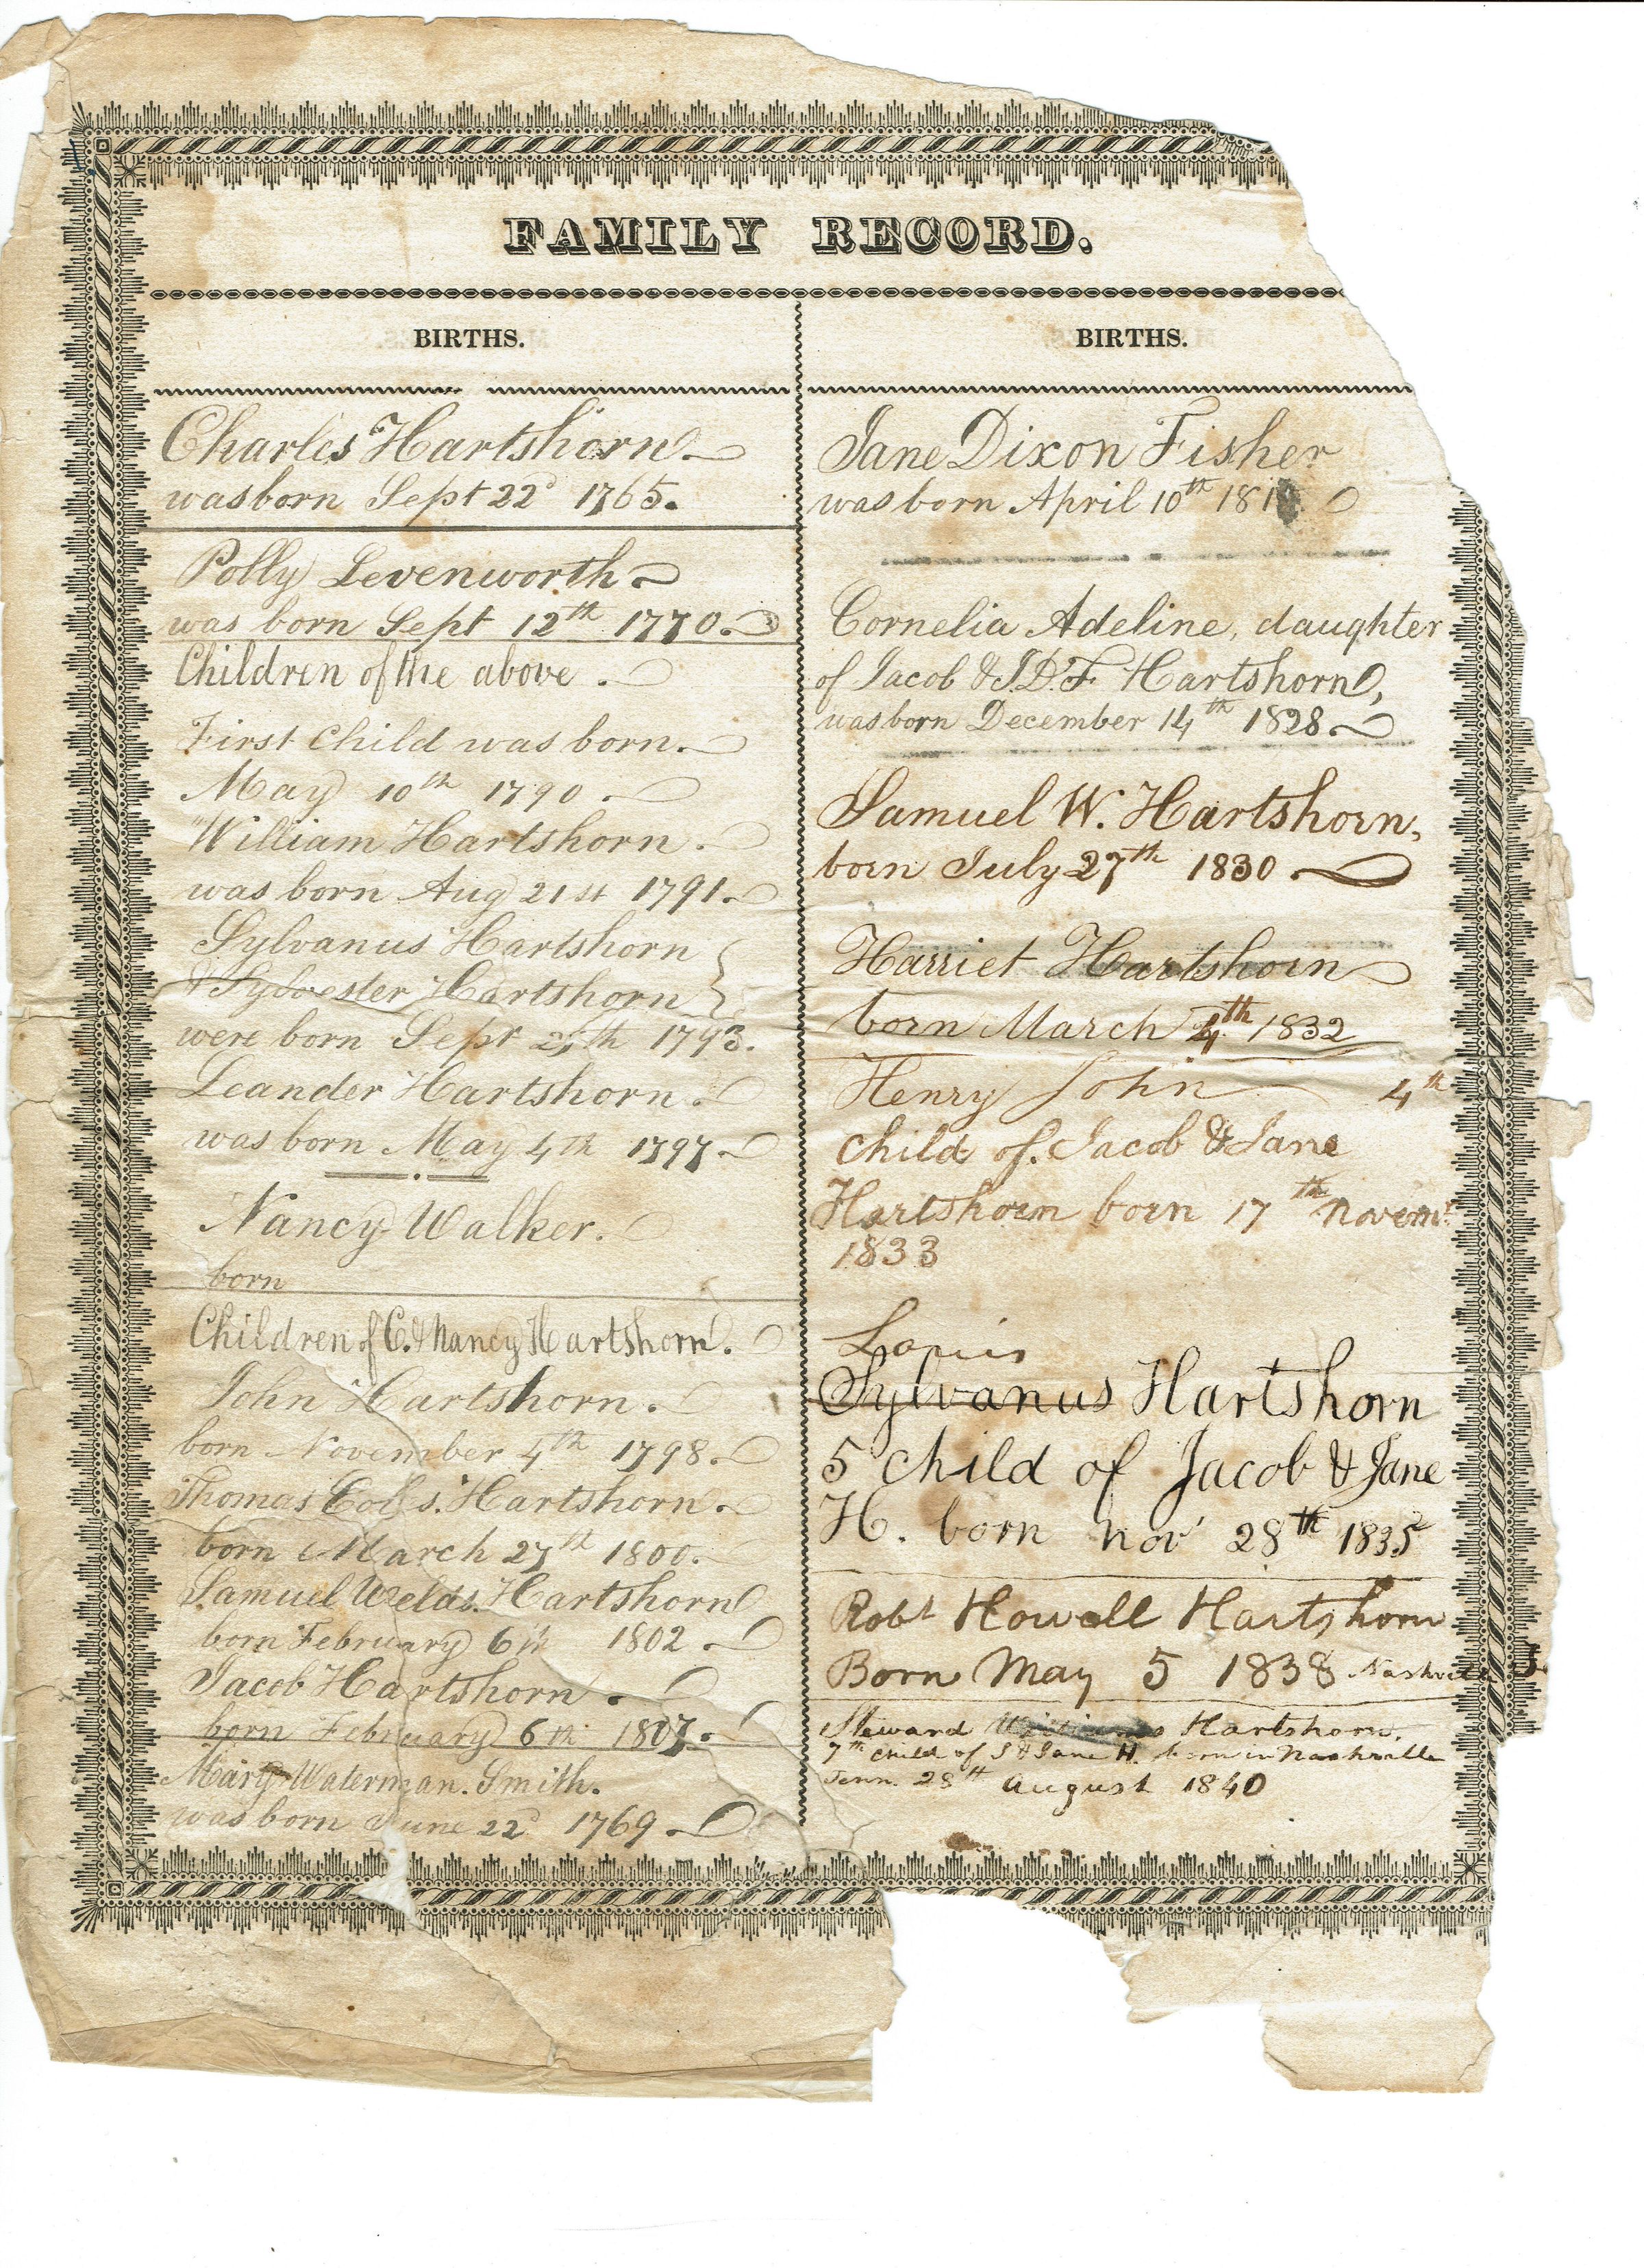 FAMILY RECORD.
BIRTHS.
Charles Hartshorn
was born Sept 22d 1765.
Polly Levenworth
was born Sept 12th 1770.
Children of the above.
First Child was born.
May 10th 1790.
William Hartshorn.
was born Aug 21st 1791.
Sylvanus Hartshorn
& Sylvester Hartshorn }
were born Sept 25th 1793.
Leander Hartshorn.
was born May 4th 1797.
Nancy Walker.
born
Children of C. & Nancy Hartshorn.
John Hartshorn.
born November 4th 1798.
Thomas Hartshorn.
born March 27th 1800.
Samuel Welds. Hartshorn
born February 6th 1802.
Jacob Hartshorn.
born February 6th 1807.
Mary Waterman. Smith.
was born June 22d 1769.
BIRTHS.
Jane Dixon Fisher
was born April 10th
Cornelia Adeline, daughter
of Jacob & J.D.F. Hartshorn,
was born December 14th 1828.
Samuel W. Hartshorn,
born July 27th 1830.
Harriet Hartshorn
born March 4th 1832
Henry John 4th
Child of Jacob & Jane
Hartshorn born 17th Novemr
1833
Louis
Sylvanus Hartshorn
5 Child of Jacob & Jane
H. born Nov 28th 1835
Robt Howell Hartshorn
Born May 5 1838
Steward Hartshorn,
7th child of J & Jane H. born in Nashville
Tenn. 28th August 1840